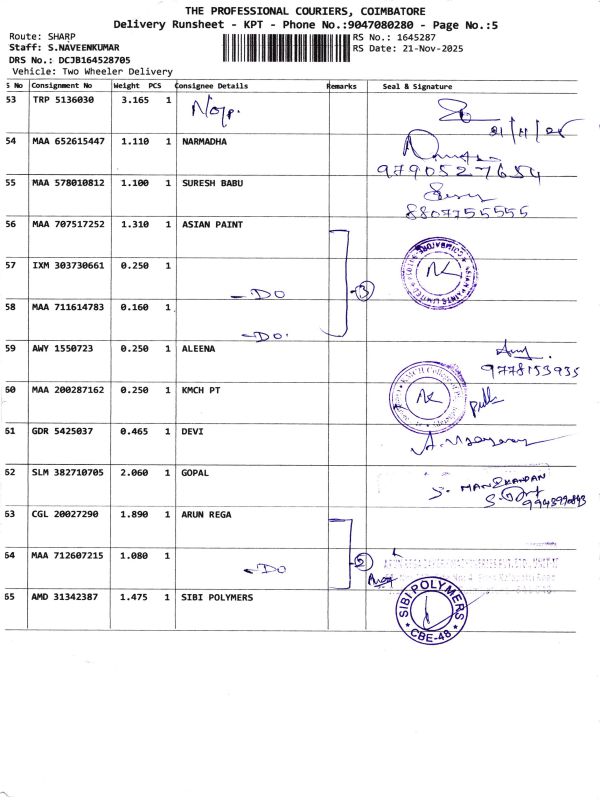 THE PROFESSIONAL COURIERS, COIMBATORE
Delivery Runsheet - KPT - Phone No.:9047080280 - Page No.:5
Route: SHARP
RS No.: 1645287
Staff: S.NAVEENKUMAR
RS Date: 21-Nov-2025
DRS No.: DCJB164528705
Vehicle: Two Wheeler Delivery
S No Consignment No Weight PCS Consignee Details Remarks Seal & Signature
53 TRP 5136030 3.165 1
54 MAA 652615447 1.110 1 NARMADHA
9790527654
55 MAA 578010812 1.100 1 SURESH BABU
8807755555
56 MAA 707517252 1.310 1 ASIAN PAINT
57 IXM 303730661 0.250 1
- DO 3
58 MAA 711614783 0.160 1
- DO.
59 AWY 1550723 0.250 1 ALEENA
9778153935
60 MAA 200287162 0.250 1 KMCH PT
61 GDR 5425037 0.465 1 DEVI
62 SLM 382710705 2.060 1 GOPAL
S. MANIKANDAN
63 CGL 20027290 1.890 1 ARUN REGA
64 MAA 712607215 1.080 1
- DO 2
65 AMD 31342387 1.475 1 SIBI POLYMERS
SIBI POLYMERS
* CBE-48 *